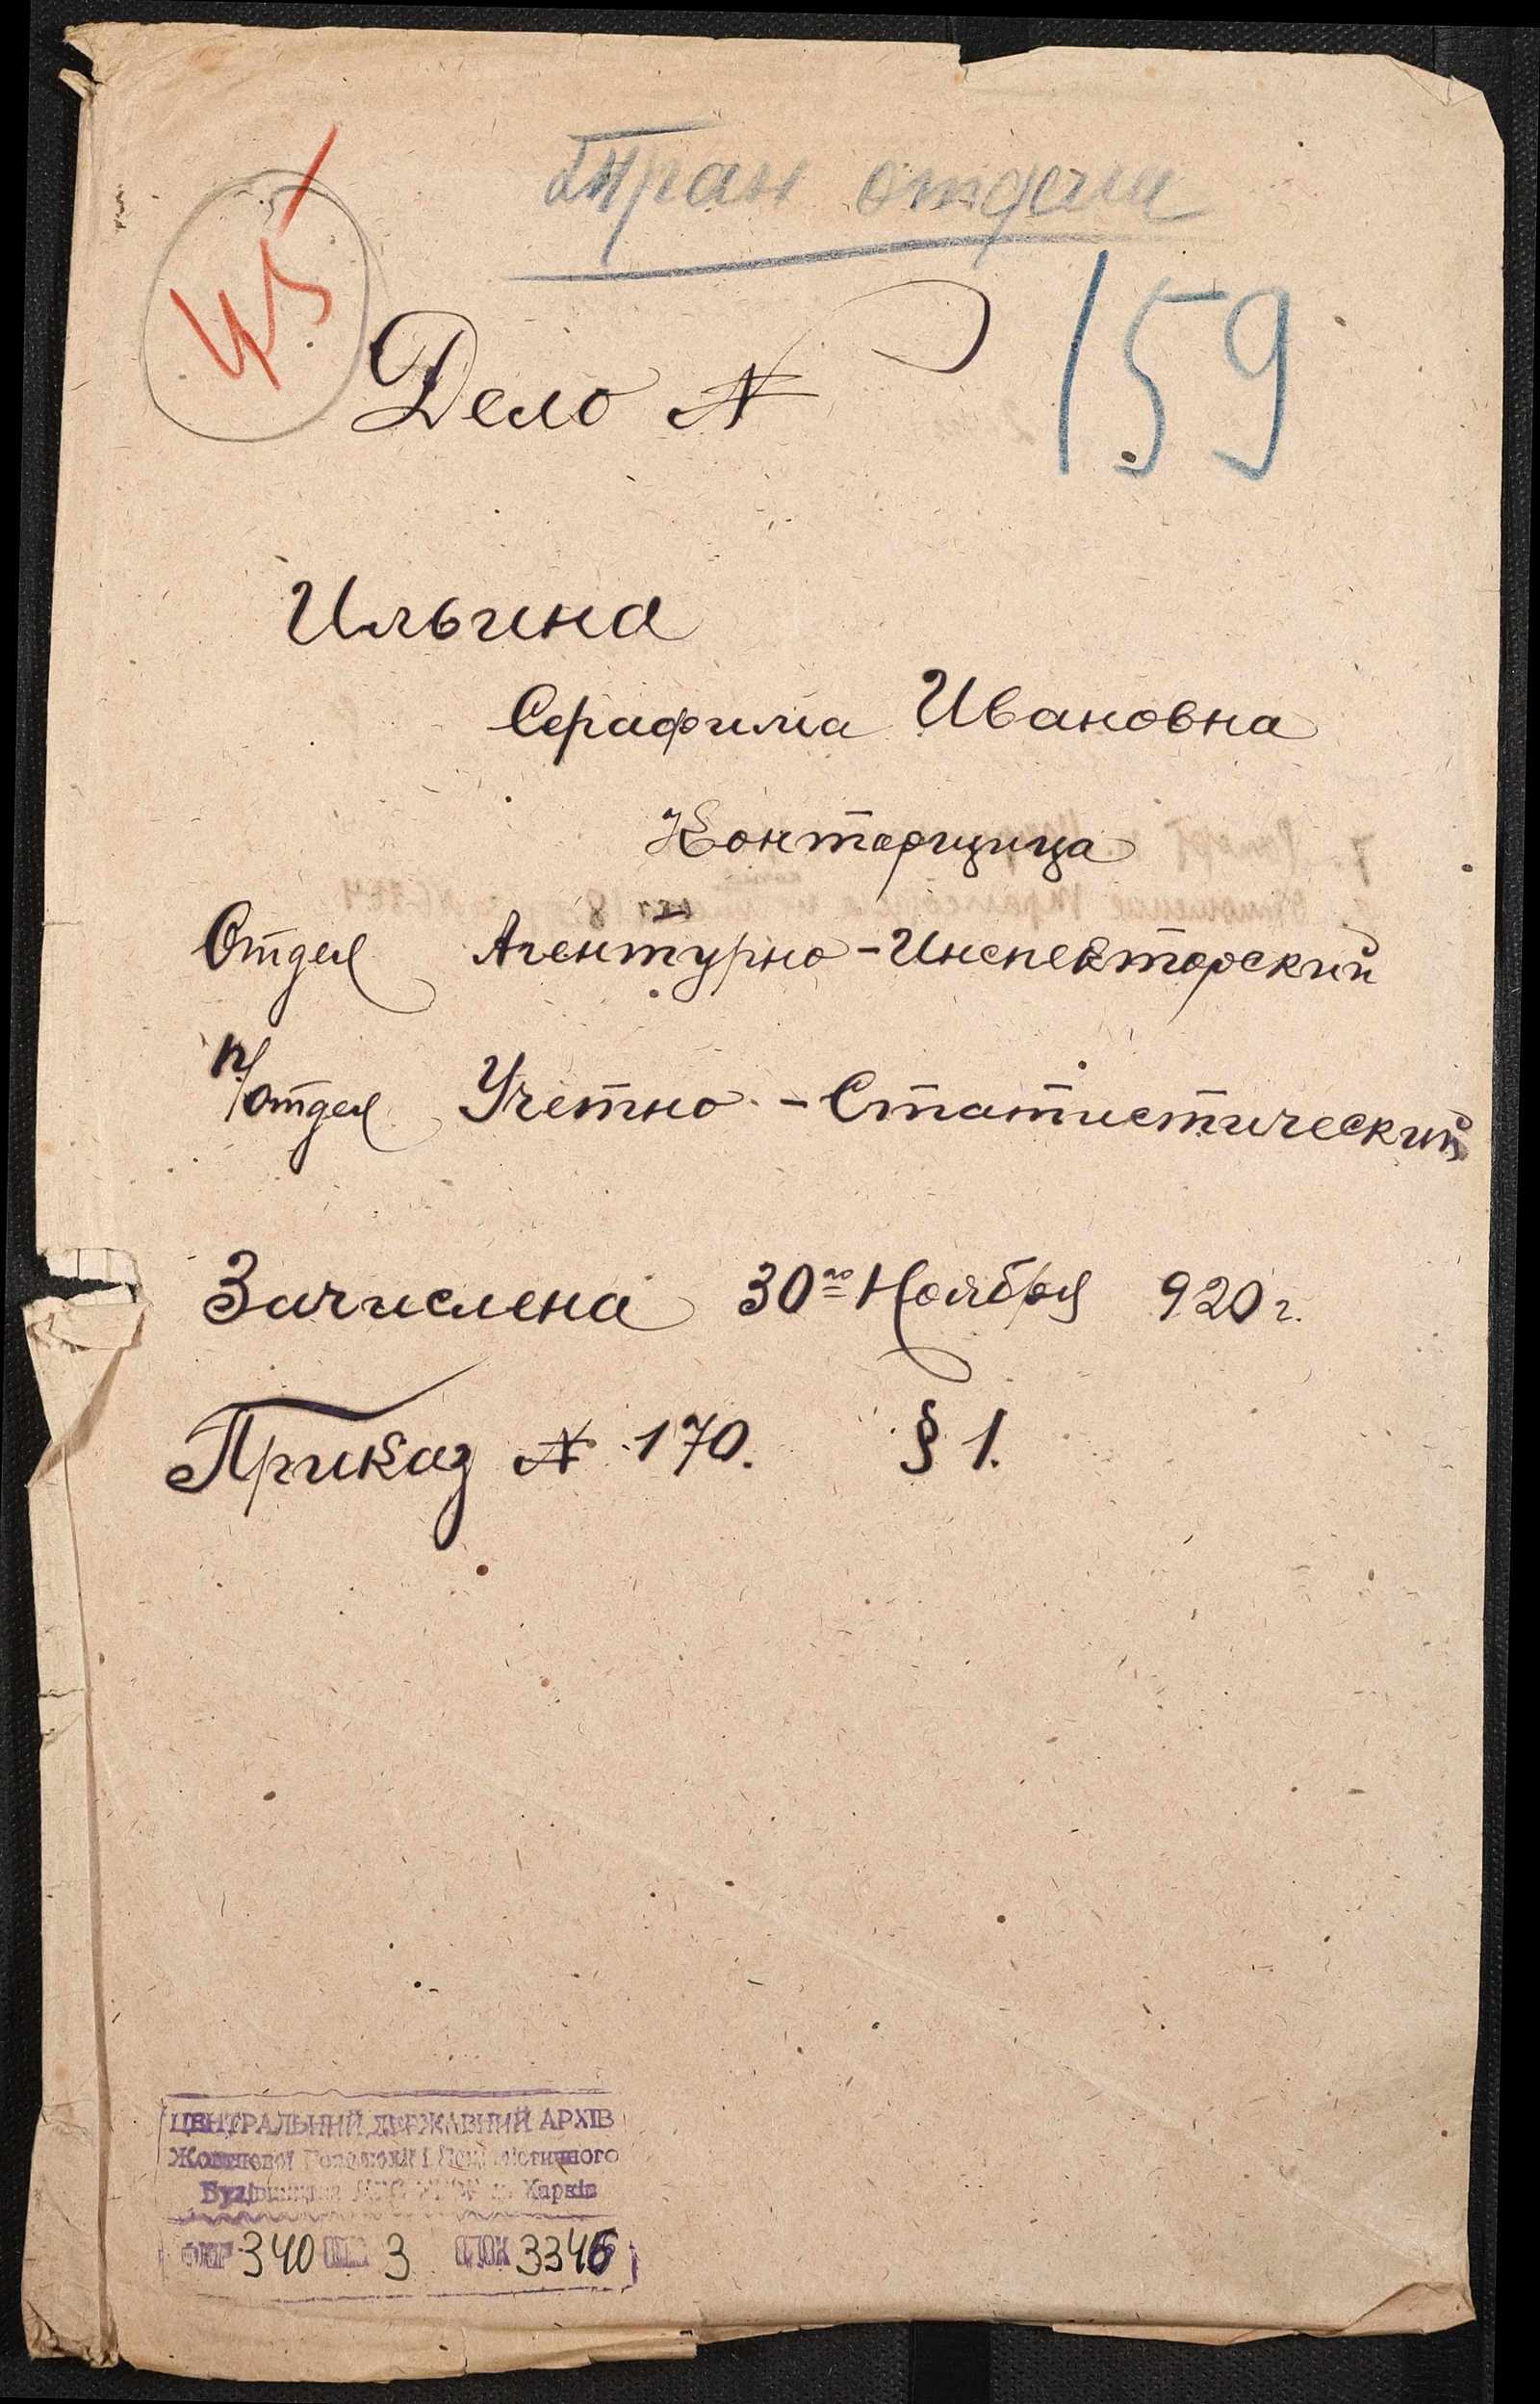 Тран отдела
45
Дело № 159
Ильина
Серафима Ивановна
Конторщица
Отдел Агентурно-Инспекторский
п/отдел Учетно-Статистический
Зачислена 30го Ноября 920 г.
Приказ № 170. § 1.
ЦЕНТРАЛЬНИЙ ДЕРЖАВНИЙ АРХІВ
Жовтневої Революції і Соціалістичного
Будівництва Харків
ФКР 340 3 3346